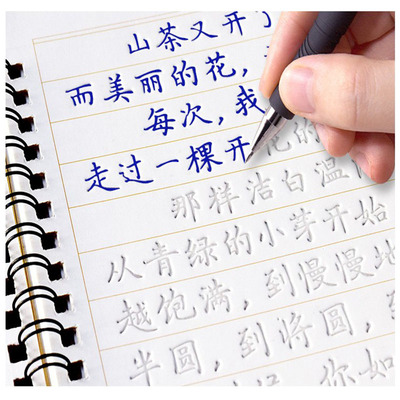 山茶又开了
而美丽的花，
每次，我
走过一棵开花的
那样洁白温
从青绿的小芽开始
越饱满，到慢慢地
半圆，到将圆，到
你如